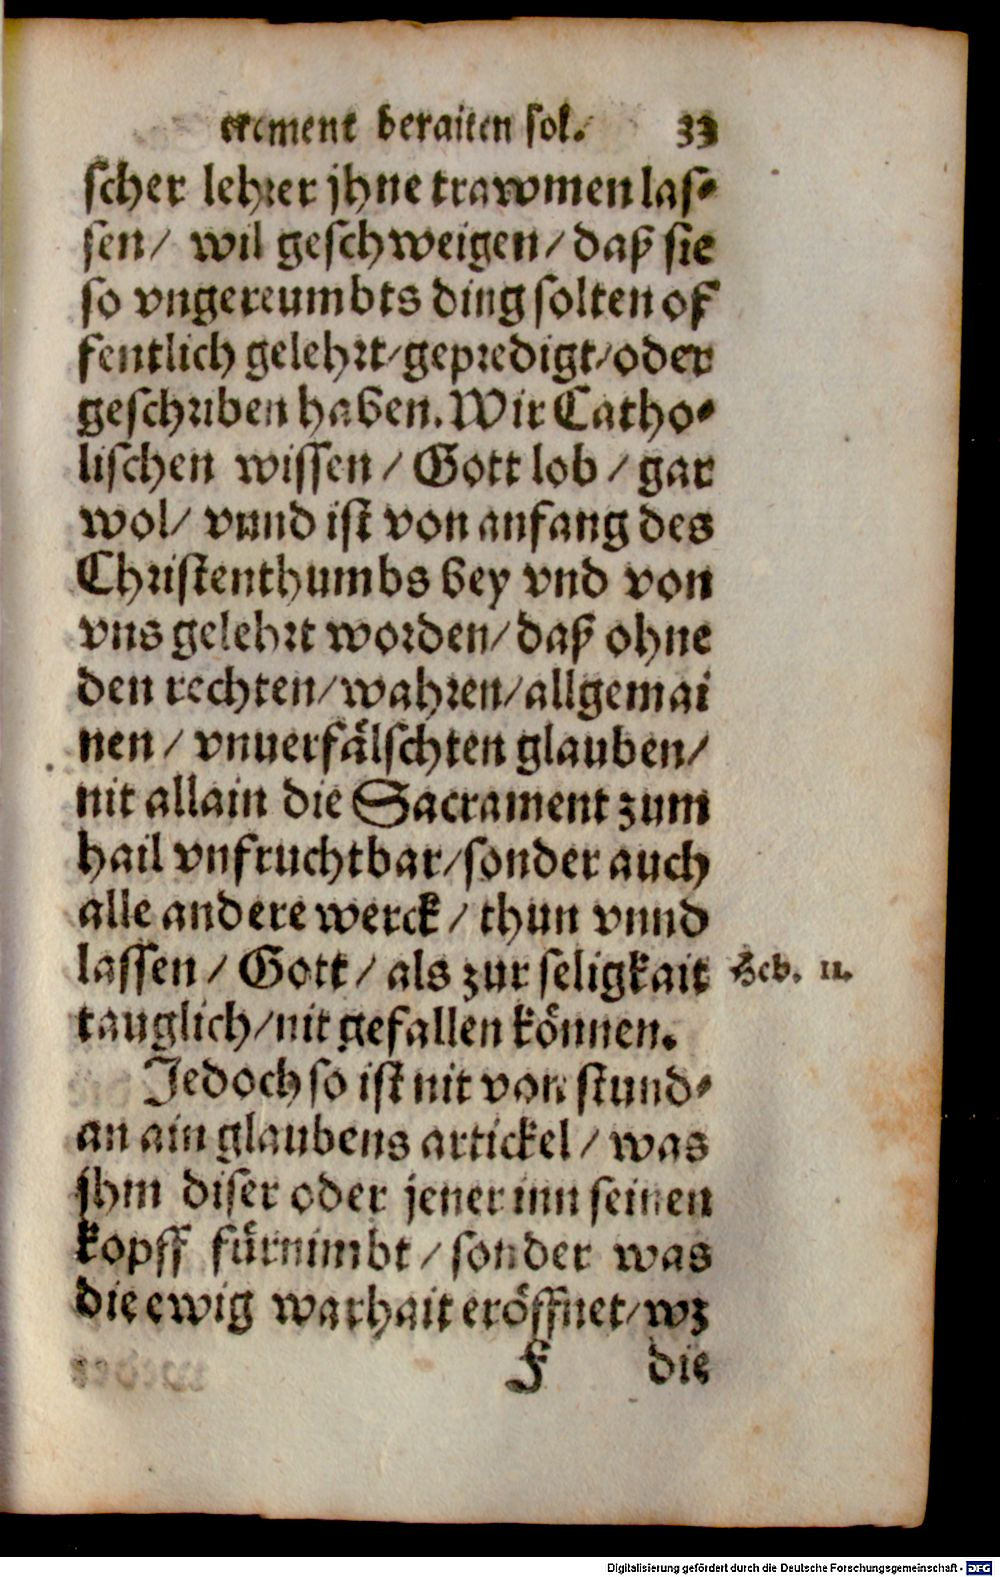 crament beraiten sol. 33
scher lehrer jhne trawmen las-
sen/ wil geschweigen/ daß sie
so vngereumbts ding solten of
fentlich gelehrt/gepredigt/oder
geschriben haben. Wir Catho-
lischen wissen / Gott lob / gar
wol/ vnnd ist von anfang des
Christenthumbs bey vnd von
vns gelehrt worden/ daß ohne
den rechten/wahren/allgemai
nen / vnuerfälschten glauben/
nit allain die Sacrament zum
hail vnfruchtbar/sonder auch
alle andere werck / thun vnnd
lassen / Gott / als zur seligkait Heb. 11.
tauglich/nit gefallen können.
Jedoch so ist nit von stund-
an ain glaubens artickel / was
jhm diser oder jener inn seinen
kopff fürnimbt / sonder was
die ewig warhait eröffnet/wz
F die
Digitalisierung gefördert durch die Deutsche Forschungsgemeinschaft - DFG